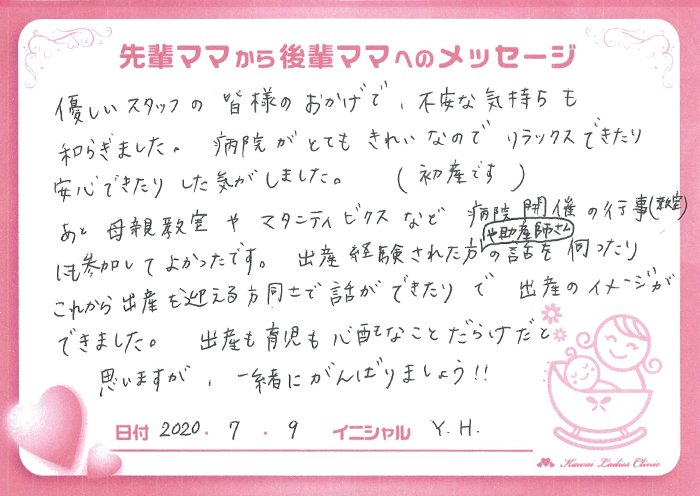 先輩ママから後輩ママへのメッセージ
優しいスタッフの皆様のおかげで、不安な気持ちも
和らぎました。病院がとてもきれいなのでリラックスできたり
安心できたりした気がしました。(初産です)
あと母親教室やマタニティビクスなど病院開催の行事(教室)
にも参加してよかったです。出産経験された方や助産師さんの話を伺ったり
これから出産を迎える方同士で話ができたりで出産のイメージが
できました。出産も育児も心配なことだらけだと
思いますが、一緒にがんばりましょう!!
日付 2020. 7 . 9 イニシャル Y.H.
Kawai Ladies Clinic